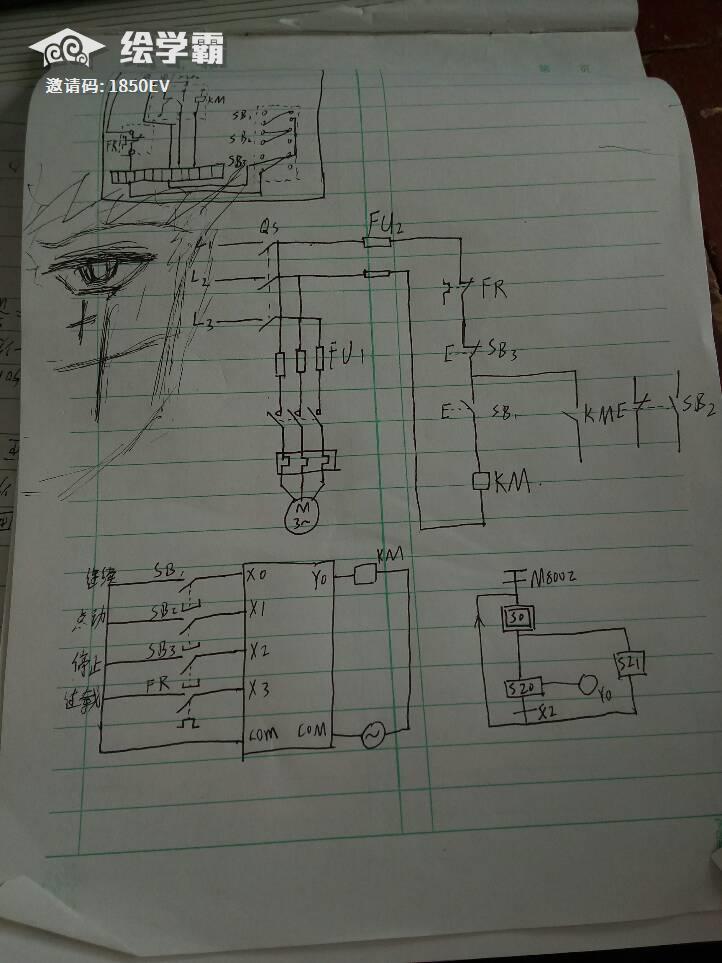 绘学霸
邀请码: 1850EV
第 页
KM
SB1
SB2
FR
SB3
QS
FU2
L1
L2
L3
FR
FU1
E SB3
E SB1
KM
E SB2
KM
M
3~
连续 SB1 X0 Y0 KM
点动 SB2 X1
停止 SB3 X2
过载 FR X3
COM COM
~
M8002
S0
S20 Y0 S21
X2